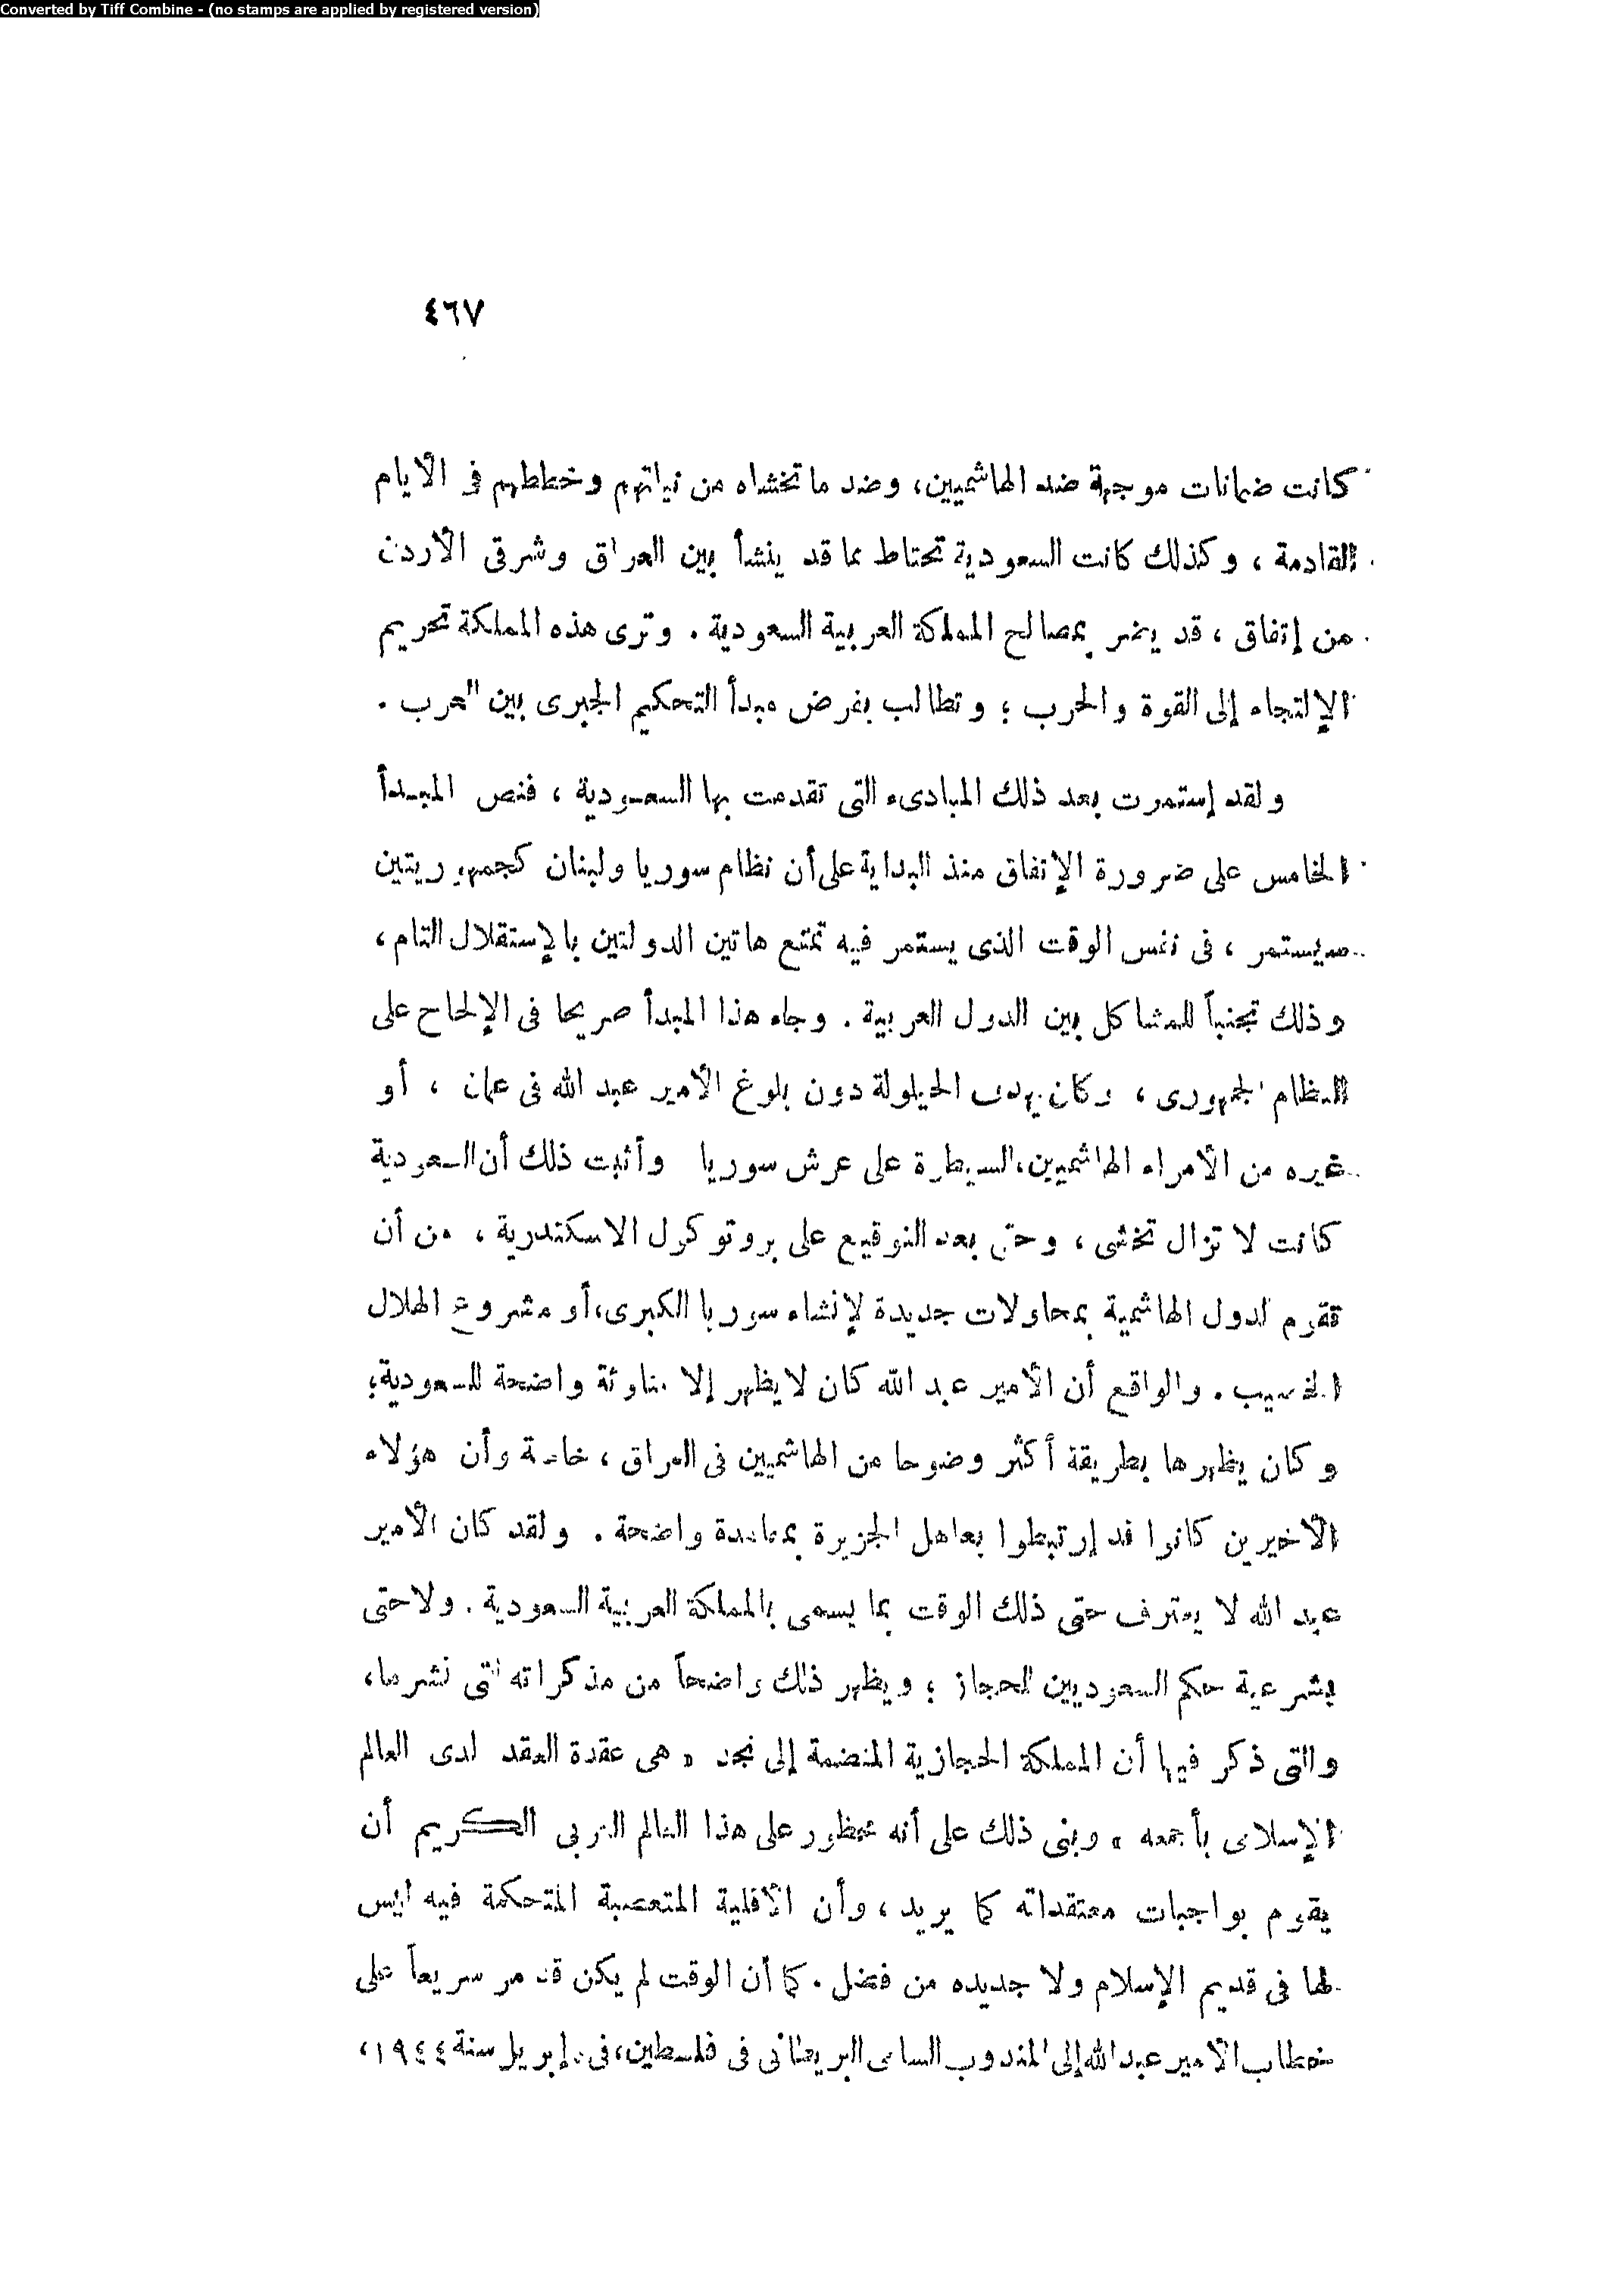 Converted by Tiff Combine - (no stamps are applied by registered version)
٤٦٧
كانت ضمانات موجهة ضد الهاشميين، وضد ما تخشاه من نياتهم وخططهم فى الأيام
القادمة ، وكذلك كانت السعودية تحتاط مما قد ينشأ بين العراق وشرقى الأردن
من إتفاق ، قد يضر بمصالح المملكة العربية السعودية . وترى هذه المملكة تحريم
الإلتجاء إلى القوة والحرب ؛ وتطالب بفرض مبدأ التحكيم الجبرى بين العرب .
ولقد إستمرت بعد ذلك المبادىء التى تقدمت بها السعودية ، فنص المبدأ
الخامس على ضرورة الإتفاق منذ البداية على أن نظام سوريا ولبنان كجمهوريتين
سيستمر ، فى نفس الوقت الذى يستمر فيه تمتع هاتين الدولتين بالإستقلال التام ،
وذلك تجنباً للمشاكل بين الدول العربية . وجاء هذا المبدأ صريحا فى الإلحاح على
النظام الجمهورى ، وكان يهدف الحيلولة دون بلوغ الأمير عبد الله فى عمان ، أو
غيره من الأمراء الهاشميين، السيطرة على عرش سوريا وأثبت ذلك أن السعودية
كانت لا تزال تخشى ، وحتى بعد التوقيع على بروتوكول الاسكندرية ، من أن
تقوم الدول الهاشمية بمحاولات جديدة لإنشاء سوريا الكبرى، أو مشروع الهلال
الخصيب . والواقع أن الأمير عبد الله كان لا يظهر إلا مناوئة واضحة للسعودية؛
وكان يظهرها بطريقة أكثر وضوحا من الهاشميين فى العراق ، خاصة وأن هؤلاء
الأخيرين كانوا قد إرتبطوا بعاهل الجزيرة بمعاهدة واضحة . ولقد كان الأمير
عبد الله لا يعترف حتى ذلك الوقت بما يسمى بالمملكة العربية السعودية . ولا حتى
بشرعية حكم السعوديين للحجاز ؛ ويظهر ذلك واضحاً من مذكراته التى نشرها،
والتى ذكر فيها أن المملكة الحجازية المنضمة إلى نجد « هى عقدة العقد لدى العالم
الإسلامى بأجمعه » وبنى ذلك على أنه محظور على هذا العالم العربى الكريم أن
يقوم بواجبات معتقداته كما يريد ، وأن الأقلية المتعصبة المتحكمة فيه ليس
لها فى قديم الإسلام ولا جديده من فضل . كما أن الوقت لم يكن قد مر سريعاً على
خطاب الأمير عبد الله إلى المندوب السامى البريطانى فى فلسطين، فى إبريل سنة ١٩٤٤ ،